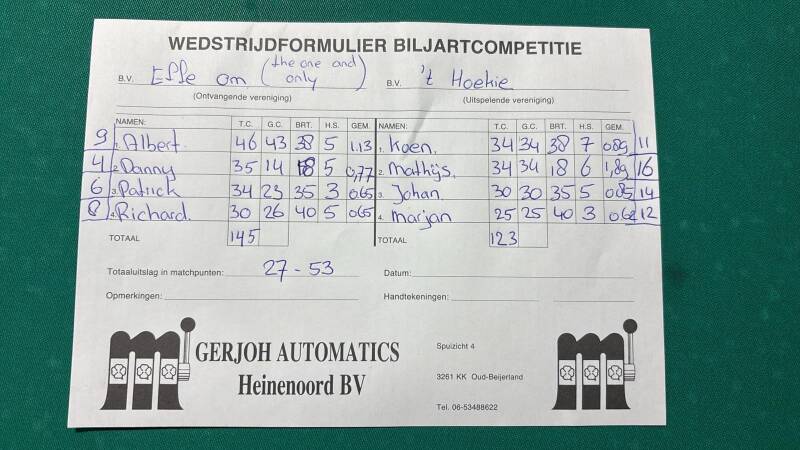 WEDSTRIJDFORMULIER BILJARTCOMPETITIE
B.V. Effe om (the one and only) B.V. 't Hoekie
(Ontvangende vereniging) (Uitspelende vereniging)
NAMEN: T.C. G.C. BRT. H.S. GEM. NAMEN: T.C. G.C. BRT. H.S. GEM.
9 1. Albert 46 43 38 5 1.13 1. Koen. 34 34 38 7 0.89 11
4 2. Danny 35 14 18 5 0,77 2. Mathijs. 34 34 18 6 1,89 16
6 3. Patrick 34 23 35 3 0.65 3. Johan. 30 30 35 5 0.85 14
8 4. Richard. 30 26 40 5 065 4. Marjan 25 25 40 3 0.62 12
TOTAAL 145 TOTAAL 123
Totaaluitslag in matchpunten: 27 - 53 Datum:
Opmerkingen: Handtekeningen:
GERJOH AUTOMATICS
Heinenoord BV
Spuizicht 4
3261 KK Oud-Beijerland
Tel. 06-53488622